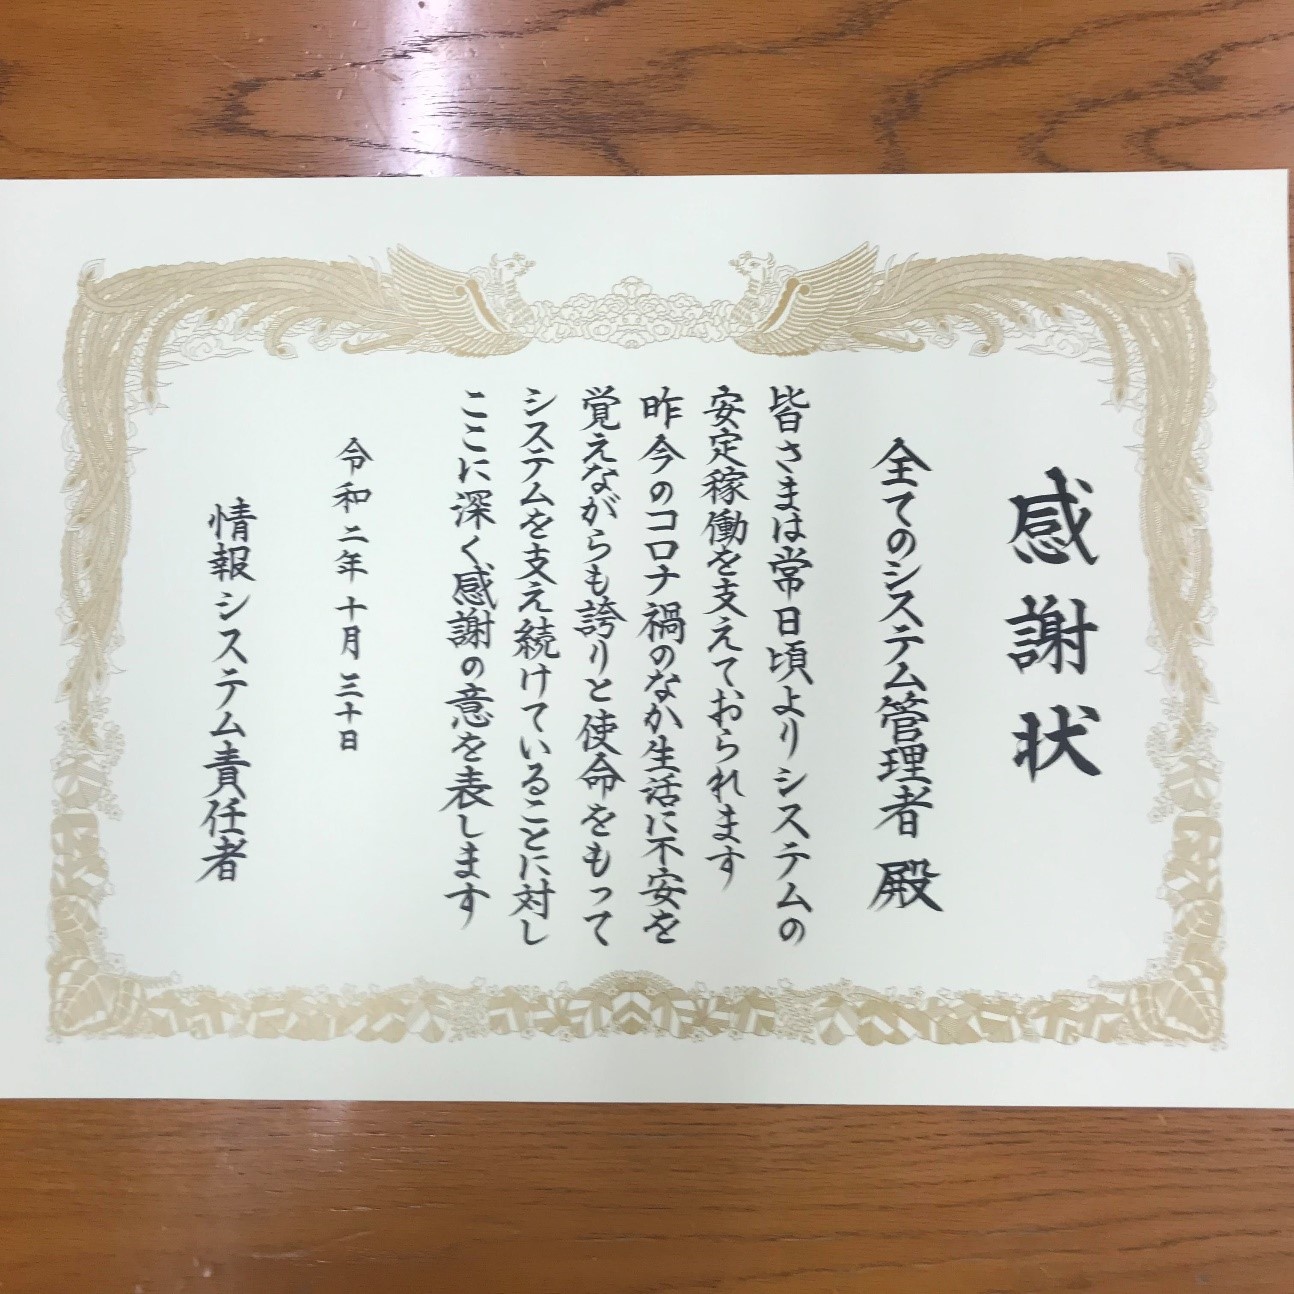 感謝状
全てのシステム管理者 殿
皆さまは常日頃よりシステムの
安定稼働を支えておられます
昨今のコロナ禍のなか生活に不安を
覚えながらも誇りと使命をもって
システムを支え続けていることに対し
ここに深く感謝の意を表します
令和二年十月三十日
情報システム責任者